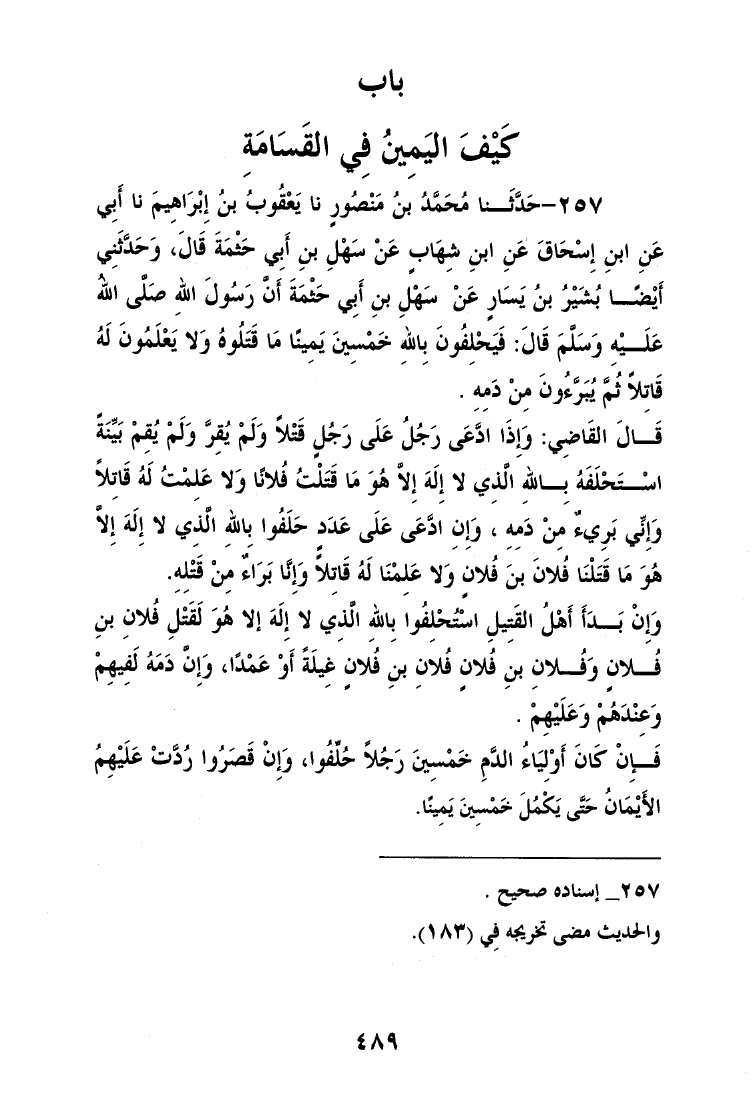 باب
كَيْفَ اليَمِينُ فِي القَسَامَةِ
٢٥٧-حَدَّثَنا مُحَمَّدُ بنُ مَنْصُورٍ نا يَعْقُوبُ بنُ إِبْرَاهِيمَ نا أَبي
عَنِ ابنِ إِسْحَاقَ عَنِ ابنِ شِهَابٍ عَنْ سَهْلِ بنِ أَبي حَثْمَةَ قَالَ، وَحَدَّثَنِي
أَيْضًا بُشَيْرُ بنُ يَسَارٍ عَنْ سَهْلِ بنِ أَبي حَثْمَةَ أَنَّ رَسُولَ اللهِ صَلَّى اللهُ
عَلَيْهِ وَسَلَّمَ قَالَ: فَيَحْلِفُونَ بِاللهِ خَمْسِينَ يَمِينًا مَا قَتَلُوهُ وَلا يَعْلَمُونَ لَهُ
قَاتِلاً ثُمَّ يُبَرَّءُونَ مِنْ دَمِهِ .
قَالَ القَاضِي: وَإِذَا ادَّعَى رَجُلٌ عَلَى رَجُلٍ قَتْلاً وَلَمْ يُقِرَّ وَلَمْ يُقِمْ بَيِّنَةً
اسْتَحْلَفَهُ بِاللهِ الَّذي لا إِلَهَ إِلاَّ هُوَ مَا قَتَلْتُ فُلانًا وَلا عَلِمْتُ لَهُ قَاتِلاً
وَإِنِّي بَرِيءٌ مِنْ دَمِهِ ، وَإِنِ ادَّعَى عَلَى عَدَدٍ حَلَفُوا بِاللهِ الَّذي لا إِلَهَ إِلاَّ
هُوَ مَا قَتَلْنَا فُلانَ بنَ فُلانٍ وَلا عَلِمْنَا لَهُ قَاتِلاً وَإِنَّا بَرَاءٌ مِنْ قَتْلِهِ.
وَإِنْ بَدَأَ أَهْلُ القَتِيلِ اسْتُحْلِفُوا بِاللهِ الَّذي لا إِلَهَ إِلا هُوَ لَقَتْلِ فُلانِ بنِ
فُلانٍ وَفُلانِ بنِ فُلانٍ فُلانِ بنِ فُلانٍ غِيلَةً أَوْ عَمْدًا، وَإِنَّ دَمَهُ لَفِيهِمْ
وَعِنْدَهُمْ وَعَلَيْهِمْ .
فَإِنْ كَانَ أَوْلِيَاءُ الدَّمِ خَمْسِينَ رَجُلاً حُلِّفُوا، وَإِنْ قَصَرُوا رُدَّتْ عَلَيْهِمُ
الأَيْمَانُ حَتَّى يَكْمُلَ خَمْسِينَ يَمِينًا.
٢٥٧_ إسناده صحيح .
والحديث مضى تخريجه في (١٨٣).
٤٨٩